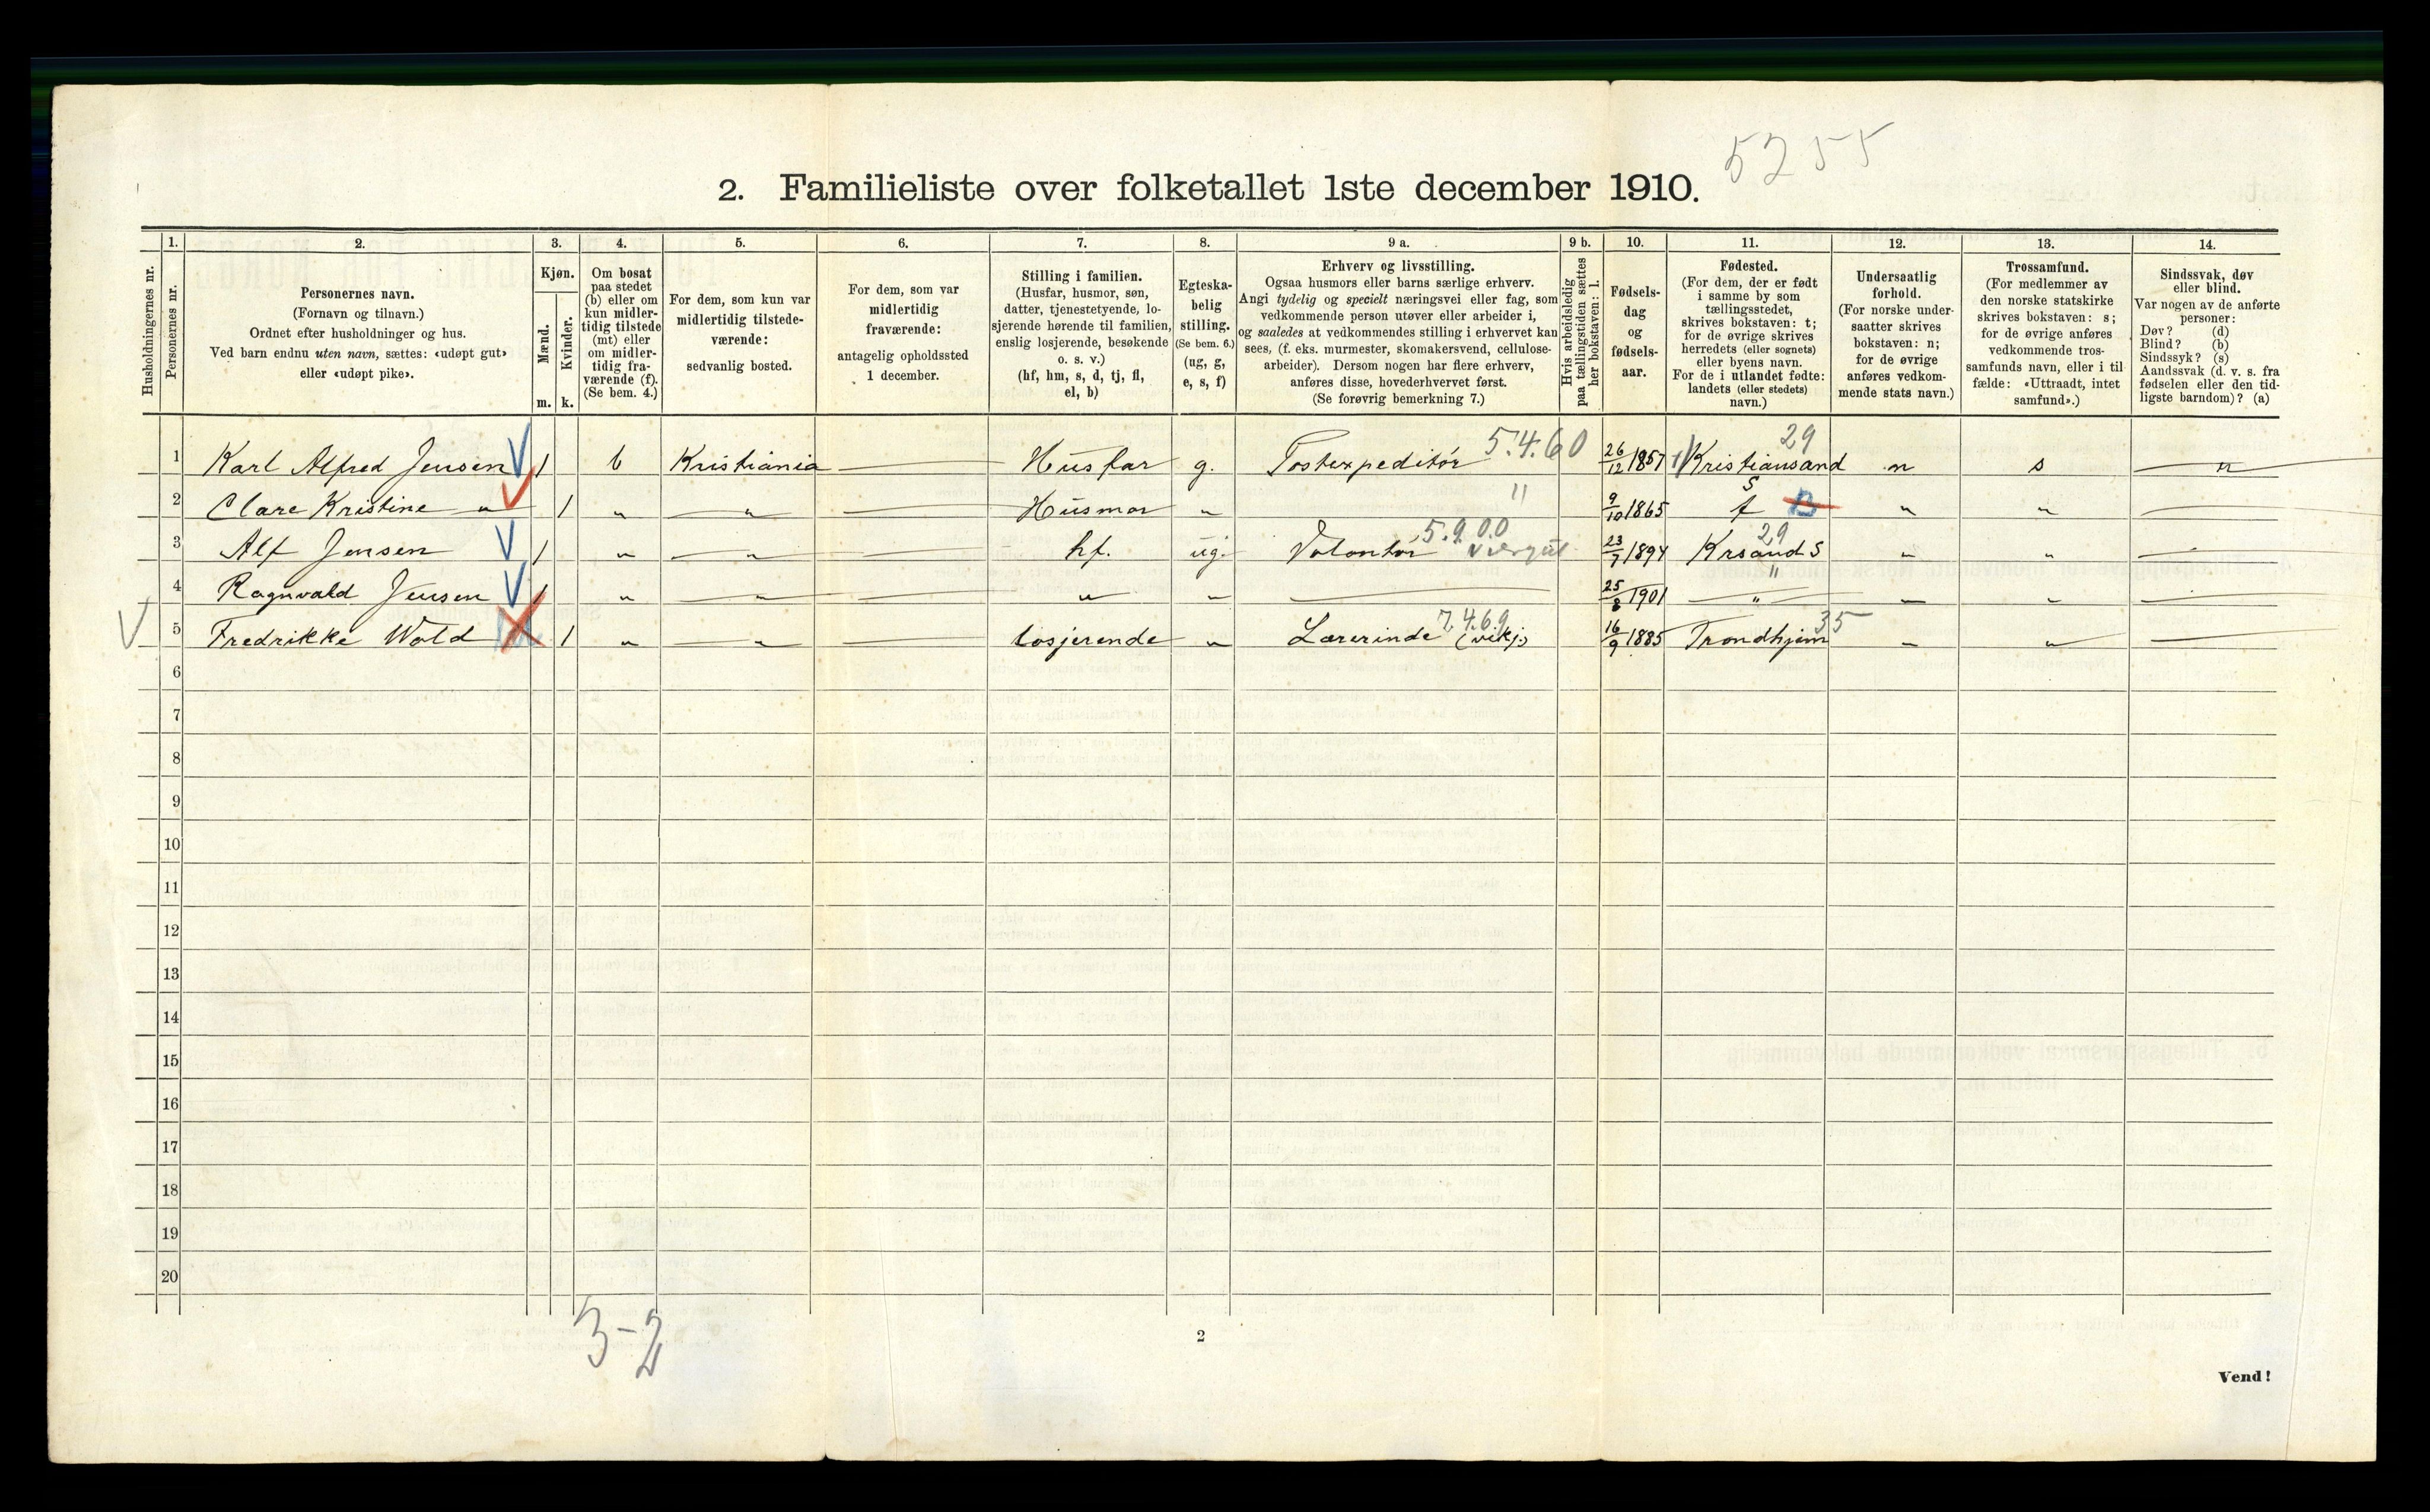 5255
2. Familieliste over folketallet 1ste december 1910.
Husholdningernes nr.
1. Personernes nr.
2. Personernes navn.
(Fornavn og tilnavn.)
Ordnet efter husholdninger og hus.
Ved barn endnu uten navn, sættes: «udøpt gut»
eller «udøpt pike».
3. Kjøn.
Mænd. m.
Kvinder. k.
4. Om bosat
paa stedet
(b) eller om
kun midler-
tidig tilstede
(mt) eller
om midler-
tidig fra-
værende (f).
(Se bem. 4.)
5. For dem, som kun var
midlertidig tilstede-
værende:
sedvanlig bosted.
6. For dem, som var
midlertidig
fraværende:
antagelig opholdssted
1 december.
7. Stilling i familien.
(Husfar, husmor, søn,
datter, tjenestetyende, lo-
sjerende hørende til familien,
enslig losjerende, besøkende
o. s. v.)
(hf, hm, s, d, tj, fl,
el, b)
8. Egteska-
belig
stilling.
(Se bem. 6.)
(ug, g,
e, s, f)
9 a. Erhverv og livsstilling.
Ogsaa husmors eller barns særlige erhverv.
Angi tydelig og specielt næringsvei eller fag, som
vedkommende person utøver eller arbeider i,
og saaledes at vedkommendes stilling i erhvervet kan
sees, (f. eks. murmester, skomakersvend, cellulose-
arbeider). Dersom nogen har flere erhverv,
anføres disse, hovederhvervet først.
(Se forøvrig bemerkning 7.)
9 b. Hvis arbeidsledig
paa tællingstiden sættes
her bokstaven: l.
10. Fødsels-
dag
og
fødsels-
aar.
11. Fødested.
(For dem, der er født
i samme by som
tællingsstedet,
skrives bokstaven: t;
for de øvrige skrives
herredets (eller sognets)
eller byens navn.
For de i utlandet fødte:
landets (eller stedets)
navn.)
12. Undersaatlig
forhold.
(For norske under-
saatter skrives
bokstaven: n;
for de øvrige
anføres vedkom-
mende stats navn.)
13. Trossamfund.
(For medlemmer av
den norske statskirke
skrives bokstaven: s;
for de øvrige anføres
vedkommende tros-
samfunds navn, eller i til-
fælde: «Uttraadt, intet
samfund».)
14. Sindssvak, døv
eller blind.
Var nogen av de anførte
personer:
Døv? (d)
Blind? (b)
Sindssyk? (s)
Aandssvak (d. v. s. fra
fødselen eller den tid-
ligste barndom)? (a)
1 Karl Alfred Jensen 1 b Kristiania — Husfar g. Postexpeditör 5.4.60 26/12 1857 Kristiansand S 29 n s — " —
2 Clare Kristine " 1 " " — Husmor " " 9/10 1865 t " " —
3 Alf Jensen 1 " " — hf. ug. Volontör 5.9.00 23/7 1894 Krsand S 29 " " —
4 Ragnvald Jensen 1 " " — " " — 25/8 1901 " " " —
5 Fredrikke Wold 1 " " — losjerende " Lærerinde (vikj.) 7.4.69 16/9 1885 Trondhjem 35 " " —
6
7
8
9
10
11
12
13
14
15
16
17
18
19
20
3-2
2
Vend!